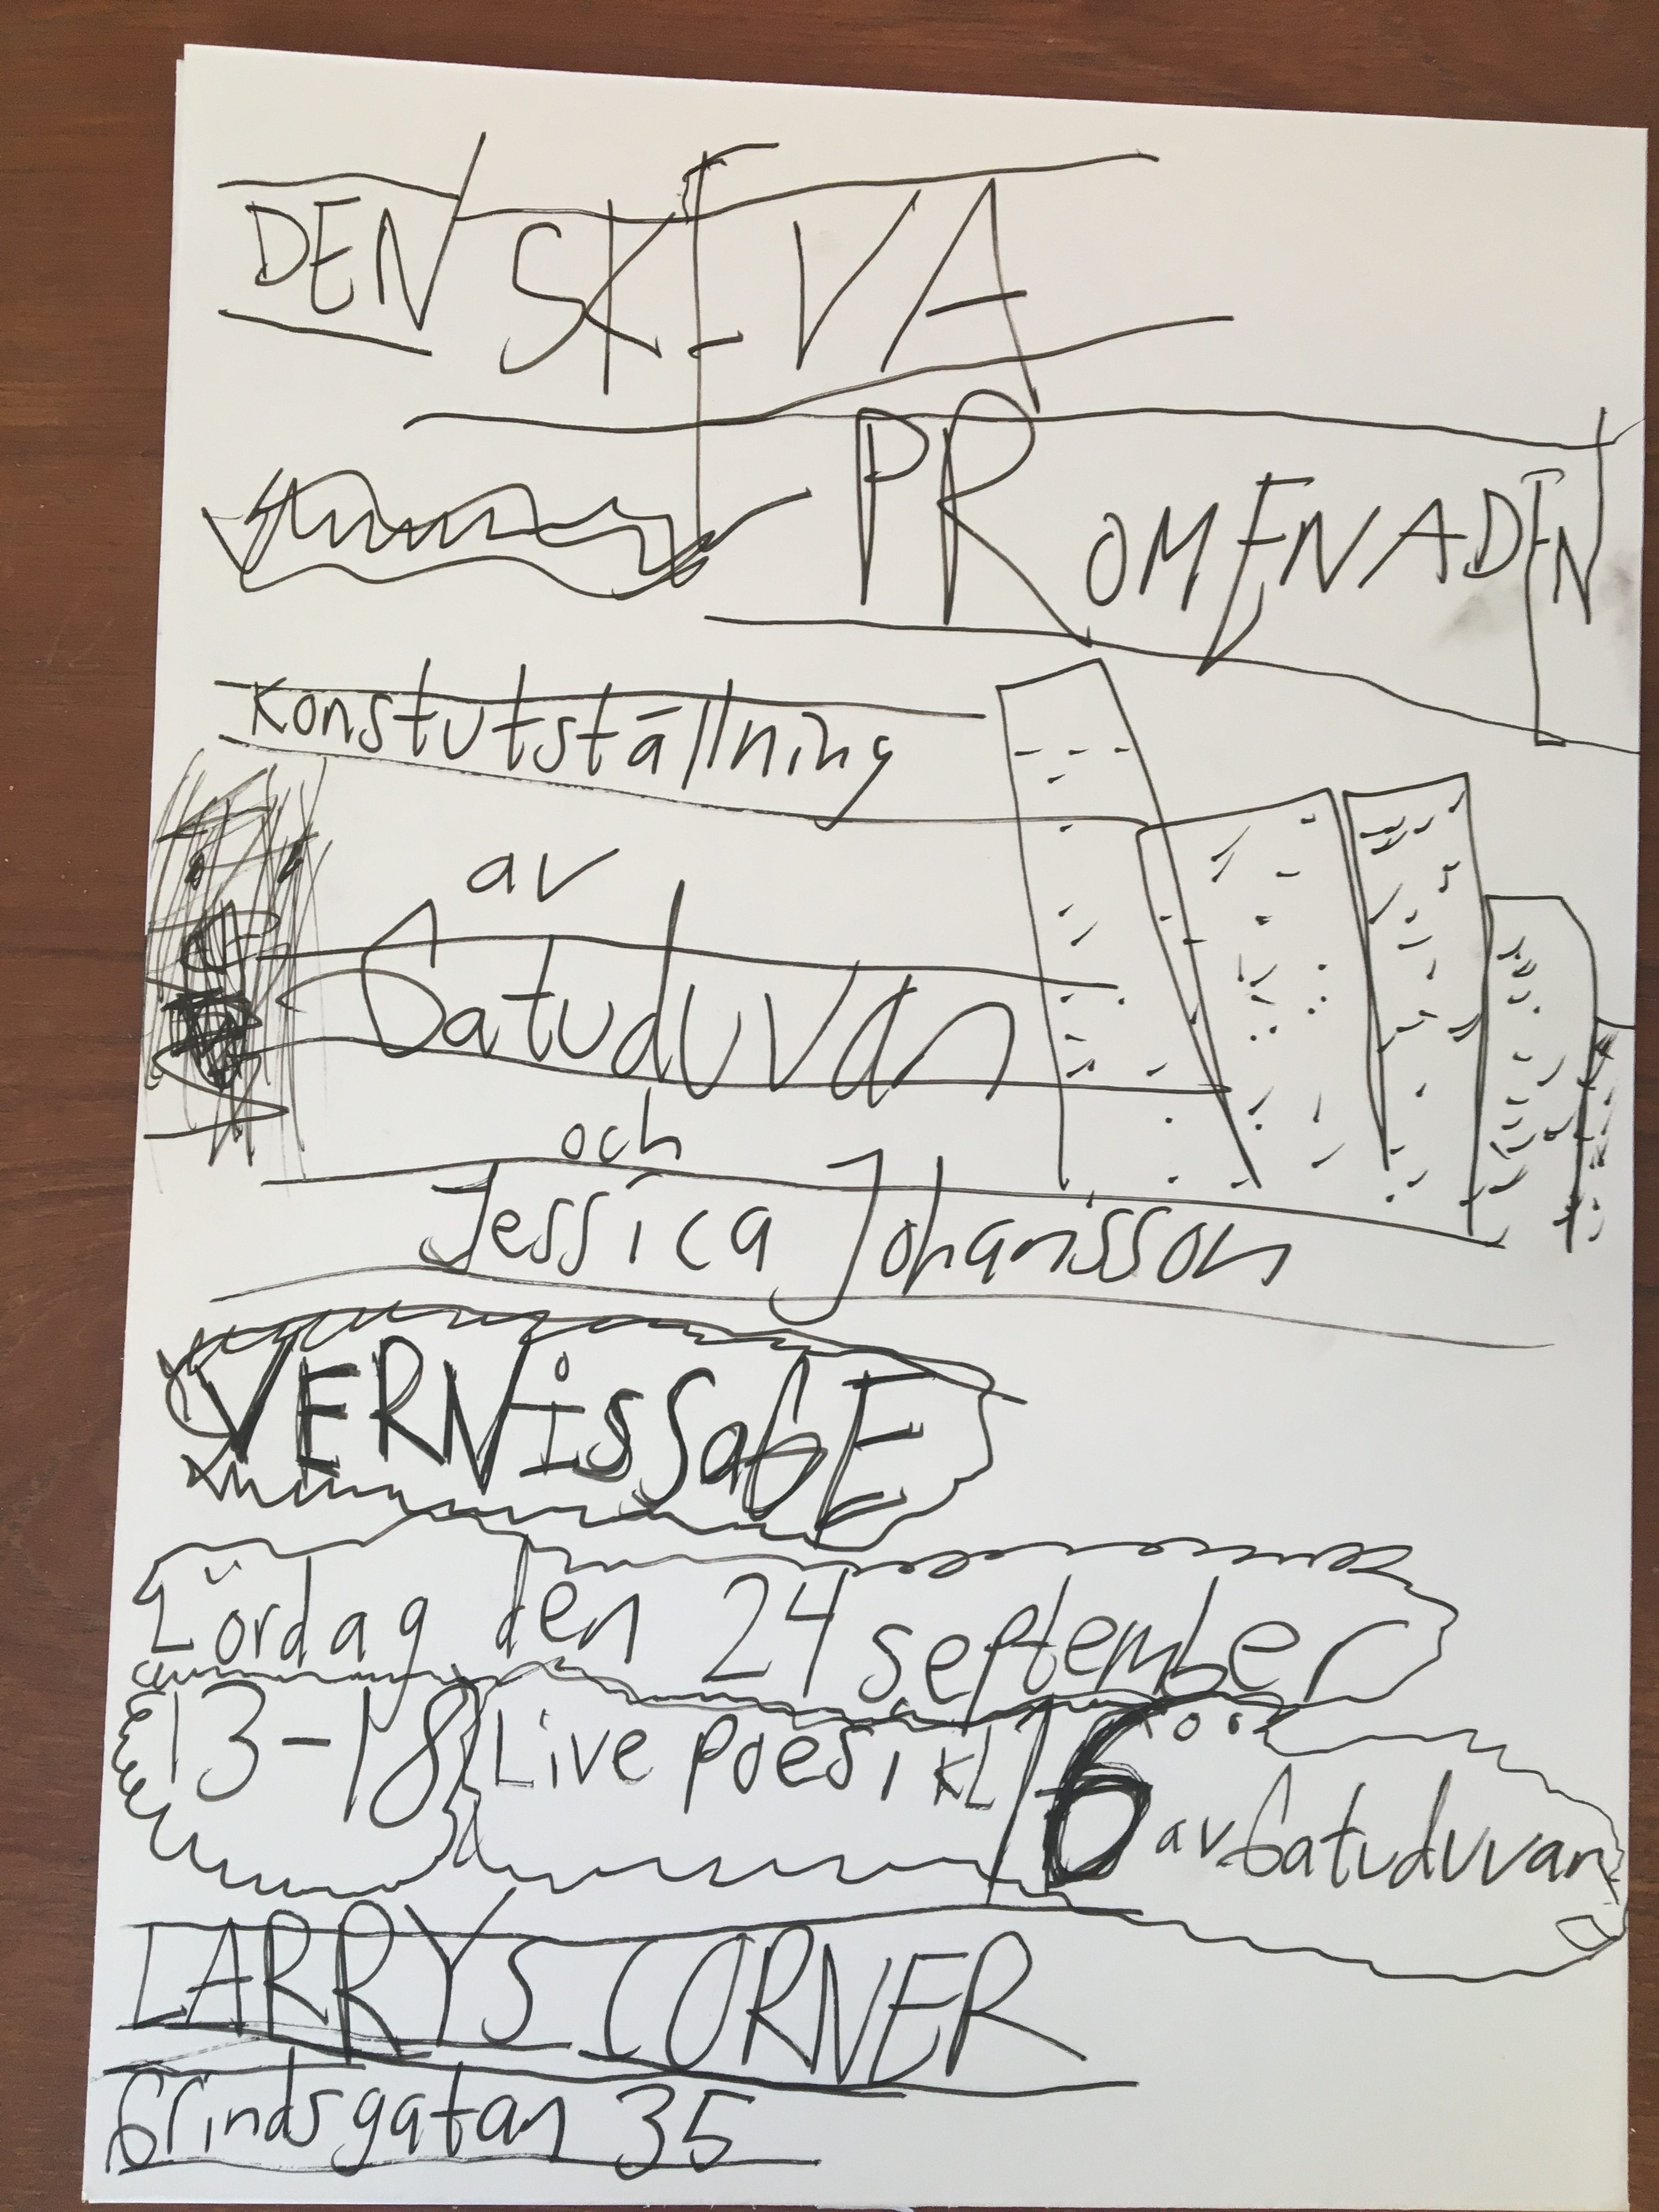 DEN SKEVA
PROMENADEN
Konstutställning
av
Gatuduvan
och
Jessica Johansson
VERNisSaGE
Lördag den 24 september
13-18 Live poesi KL 16 av Gatuduvan
LARRYS CORNER
Grindsgatan 35